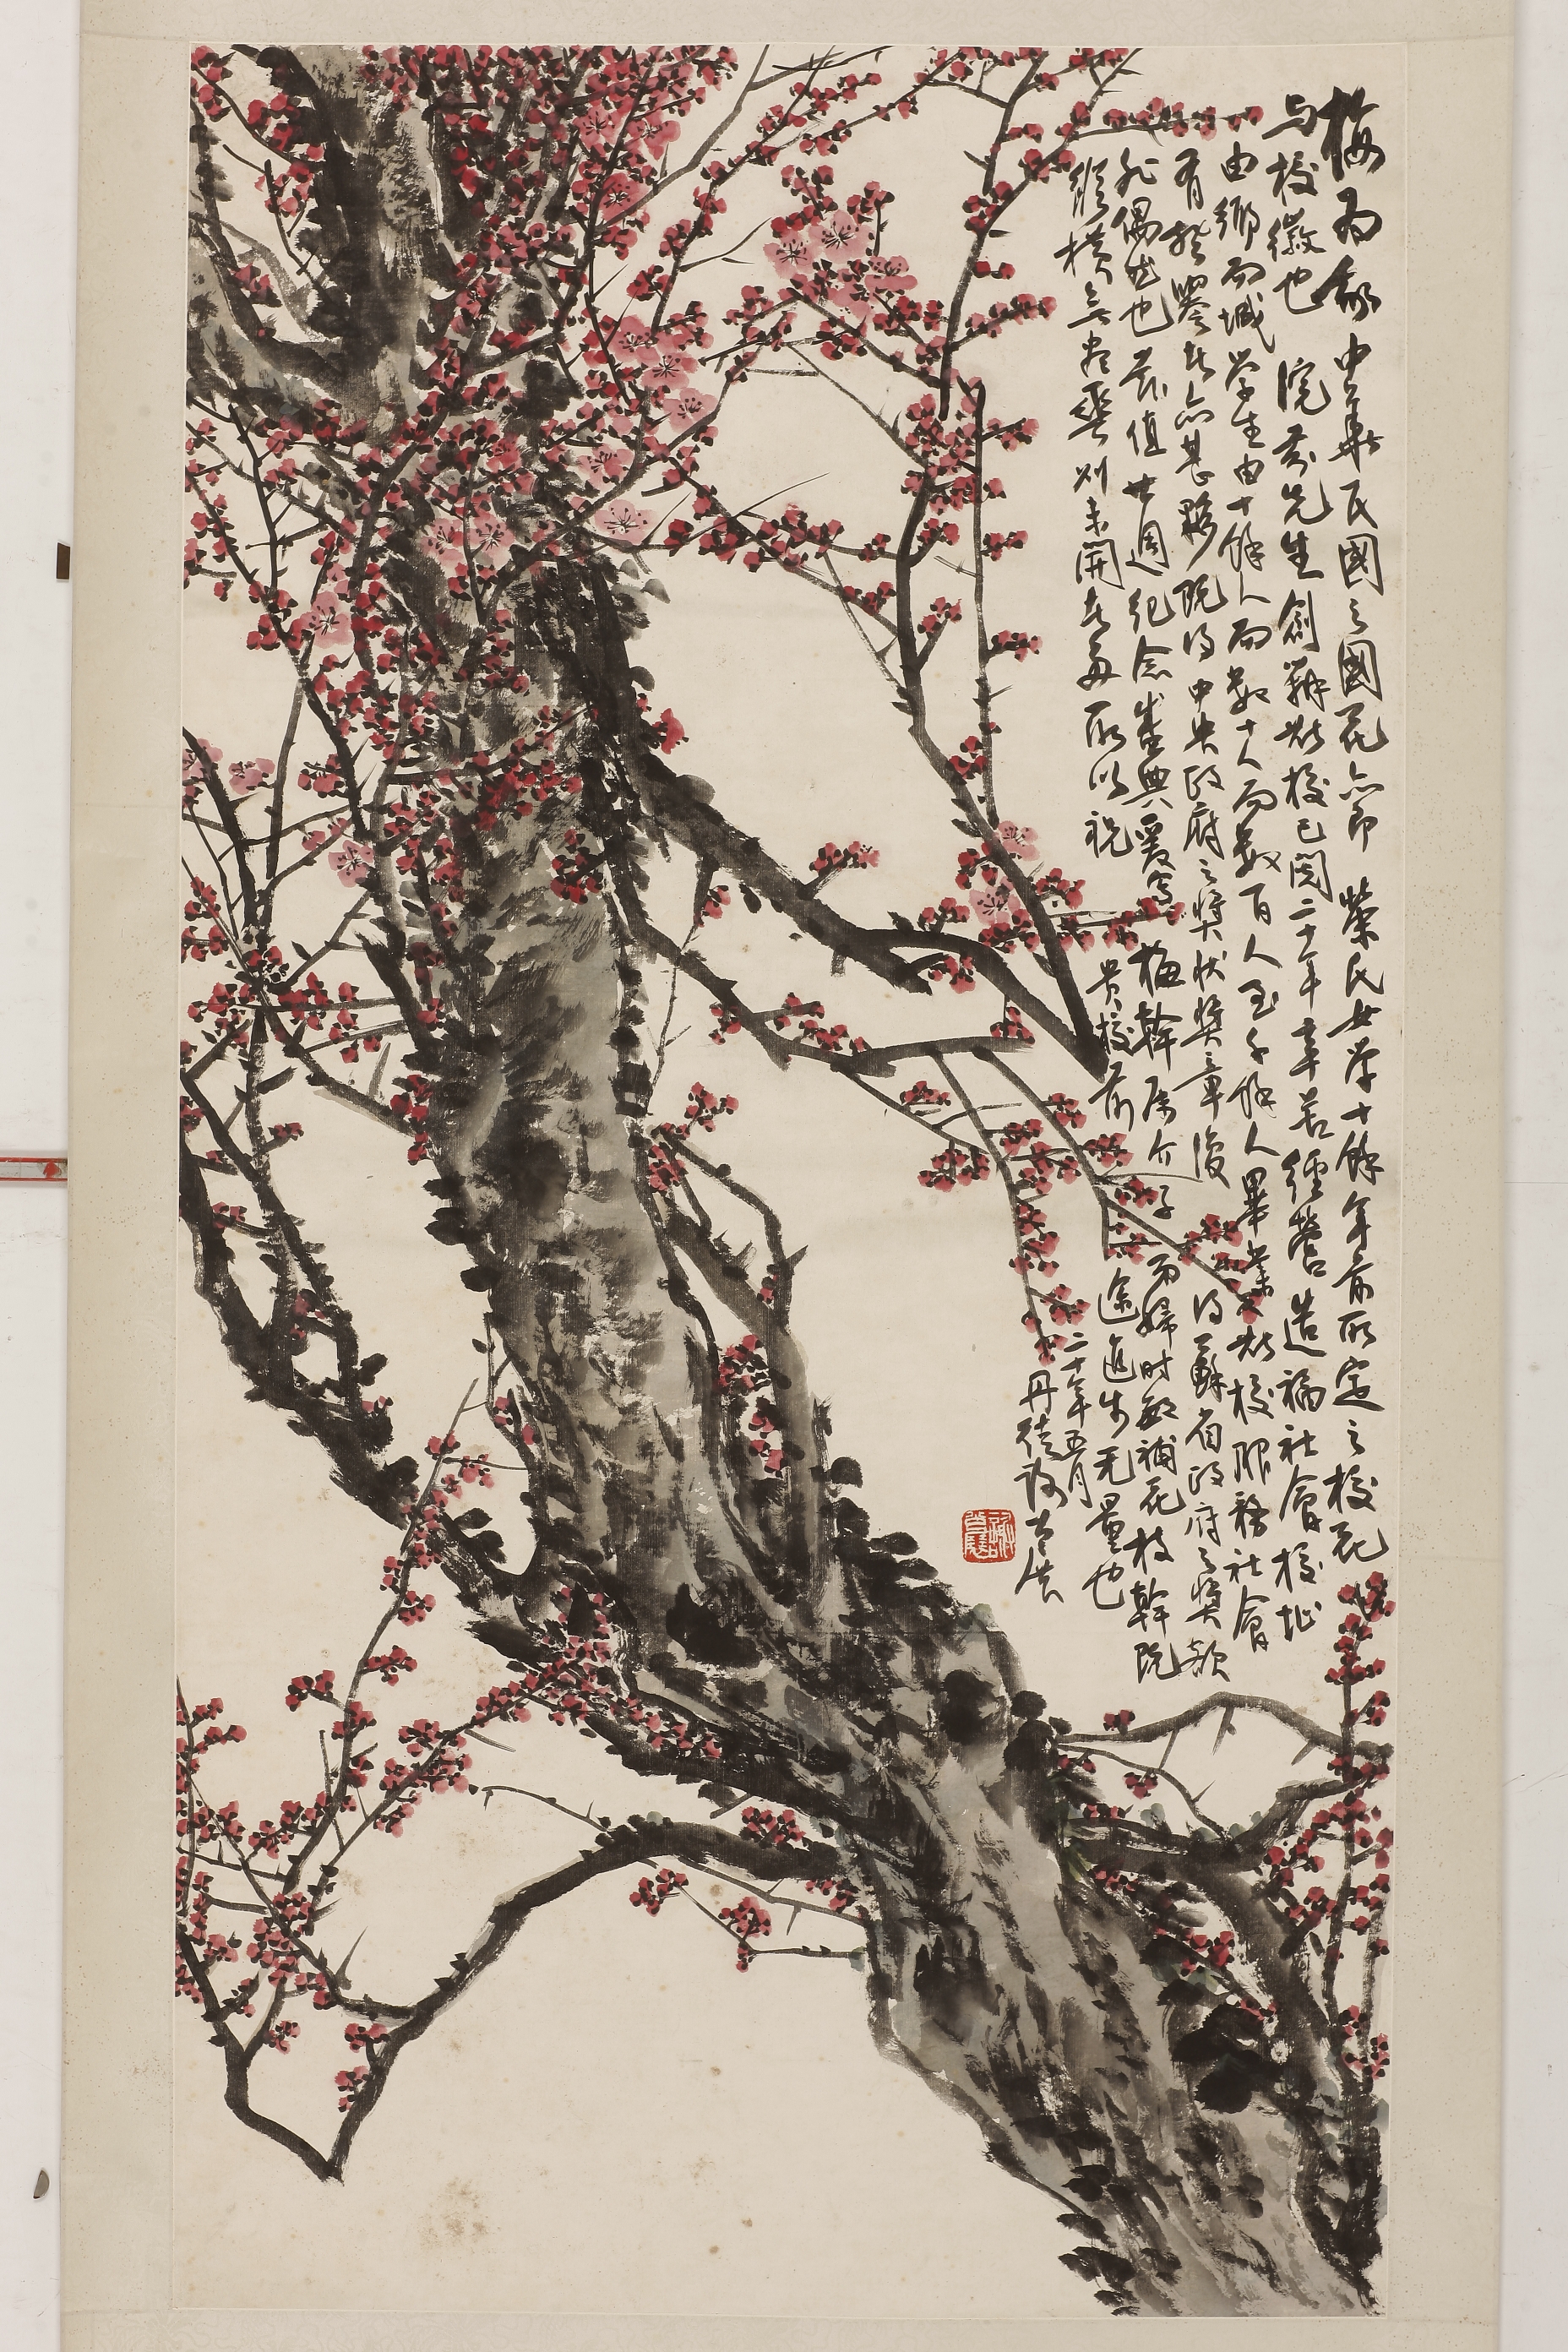 梅為我中華民國之國花亦即 榮氏女學十餘年前所定之校花
与校徽也 浣芬先生創辦斯校已閱二十年辛苦經營造福社會校址
由鄉而城學生由十餘人而數十人而數百人至千餘人畢業於校服務社會
有聲譽者亦甚夥既得中央政府之獎狀獎章復得蘇省政府之獎額
非偶然也茲值廿週紀念盛典爰寫梅幹屬介子 而歸時敏補花枝幹既
縱橫無盡蕊则未開者每 所以祝 貴校前途進步无量也
二十年五月
丹徒 公展